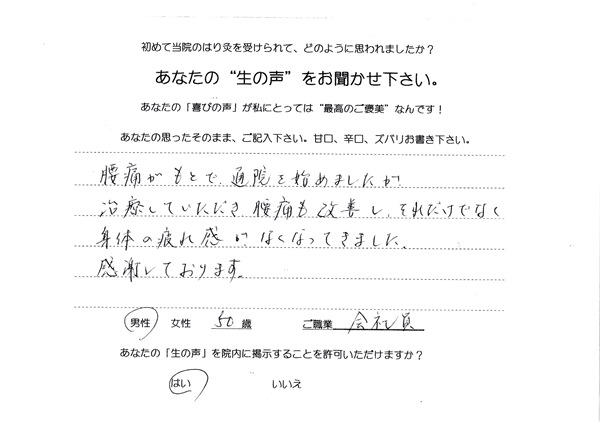 初めて当院のはり灸を受けられて、どのように思われましたか？
あなたの“生の声”をお聞かせ下さい。
あなたの「喜びの声」が私にとっては“最高のご褒美”なんです！
あなたの思ったそのまま、ご記入下さい。甘口、辛口、ズバリお書き下さい。
腰痛がもとで、通院を始めましたが
治療していただき腰痛も改善し、それだけでなく
身体の疲れ感がなくなってきました。
感謝しております。
男性 女性 50 歳 ご職業 会社員
あなたの「生の声」を院内に掲示することを許可いただけますか？
はい いいえ